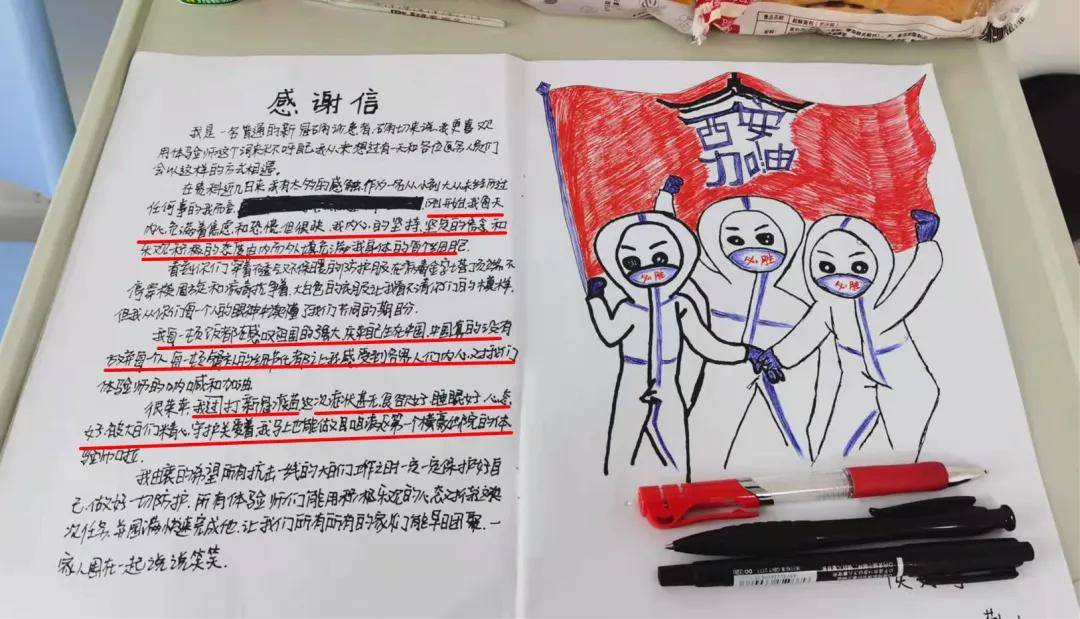 感谢信
我是一名普通的新冠确诊患者,确切来说,我更喜欢
用体验师这个词来称呼自己,我从未想过有一天和各位医务人员们
会以这样的方式相遇。
在医科近几日来,我有太多的感触,作为一名从小到大从未经历过
任何事的我而言, 刚开始,我每天
内心充满着焦虑和恐慌,但很快,我内心的坚持,坚定的信念和
乐观积极的态度由内而外填充满我身体的每个细胞。
看到你们穿着不透气又不保暖的防护服,在
停 和病毒抗争着,大白色的衣服让我看不清你们的模样,
但我从你们每一个人的眼神中读懂了我们共同的期盼。
我每一顿饭都在感叹祖国的强大,庆幸自己生在中国,中国真的没有
放弃每个人,每一顿 的细节都让我感受到务人们内心对我们
体验师的呐喊和加油
很荣幸,我过打新冠疫苗这次症状甚无,食欲好,睡眠好,心态
好,被大白们精心守护关爱着,我马上也能做又且咱凑成第一个横豪出院的体
验师啦.
我由衷的希望所有抗击一线的大白们工作之时一定一定保护好自
己,做好一切防护,所有体验师们能用积极乐观的心态对待我这
次任务,并圆满快速完成他,让我们所有所有的家人们能早日团聚,一
家人围在一起说说笑笑.
西安
加油
必胜
必胜
必胜